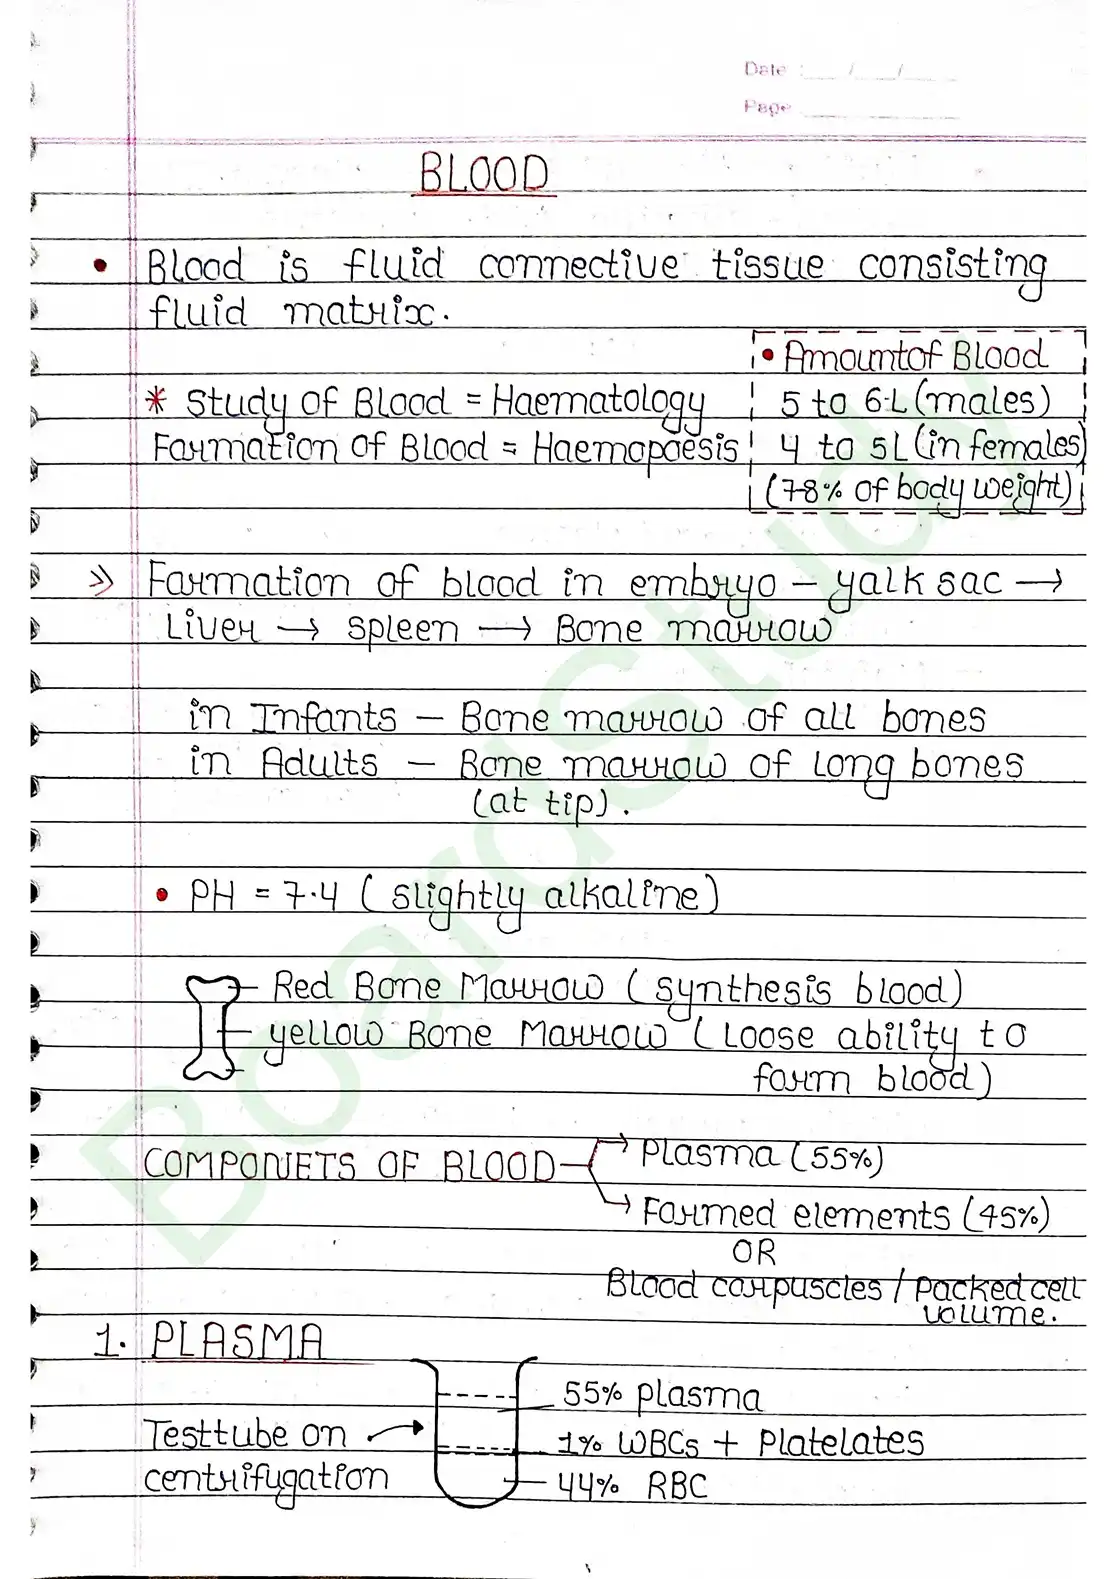 Date : ___/___/___
Page
BLOOD
• Blood is fluid connective tissue consisting
fluid matrix.
• Amount of Blood
* Study of Blood = Haematology
5 to 6 L (males)
Formation of Blood = Haemopoesis
4 to 5L (in females)
(7-8% of body weight)
>> Formation of blood in embryo – yolk sac →
Liver → spleen → Bone marrow
in Infants – Bone marrow of all bones
in Adults – Bone marrow of long bones
(at tip).
• PH = 7.4 ( slightly alkaline)
Red Bone Marrow ( synthesis blood)
yellow Bone Marrow ( Loose ability to
form blood)
COMPONETS OF BLOOD
→ Plasma (55%)
→ Formed elements (45%)
OR
Blood corpuscles / Packed cell
volume.
1. PLASMA
55% plasma
Testtube on
1% WBCs + Platelates
centrifugation
44% RBC
BoardStudy